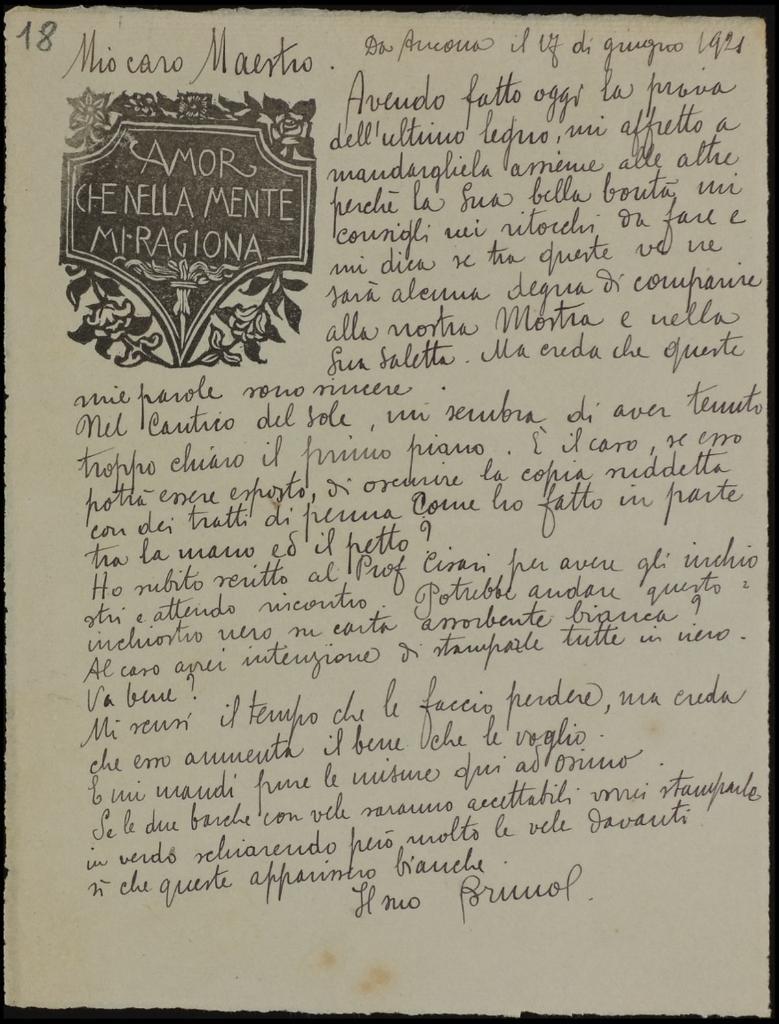 18
Mio caro Maestro.
Da Ancona il 17 di giugno 1921
AMOR
CHE NELLA MENTE
MI·RAGIONA
Avendo fatto oggi la prova
dell'ultimo legno, mi affretto a
mandargliela assieme alle altre
perchè la Sua bella bontà mi
consigli nei ritocchi da fare e
mi dica se tra queste ve ne
sarà alcuna degna di comparire
alla nostra Mostra e nella
Sua saletta. Ma creda che queste
mie parole sono sincere.
Nel Cantico del Sole, mi sembra di aver tenuto
troppo chiaro il primo piano. È il caso, se esso
potrà essere esposto, di oscurire la copia suddetta
con dei tratti di penna come ho fatto in parte
tra la mano ed il petto?
Ho subito scritto al Prof Cisari per avere gli inchio
stri e attendo riscontro. Potrebbe andare questo
inchiostro nero su carta assorbente bianca?
Al caso avrei intenzione di stamparle tutte in nero.
Va bene?
Mi scusi il tempo che le faccio perdere, ma creda
che esso aumenta il bene che le voglio.
E mi mandi pure le misure qui ad Osimo.
Se le due barche con vele saranno accettabili vorrei stamparle
in verde schiarendo però molto le vele davanti
sì che queste apparissero bianche.
Il suo